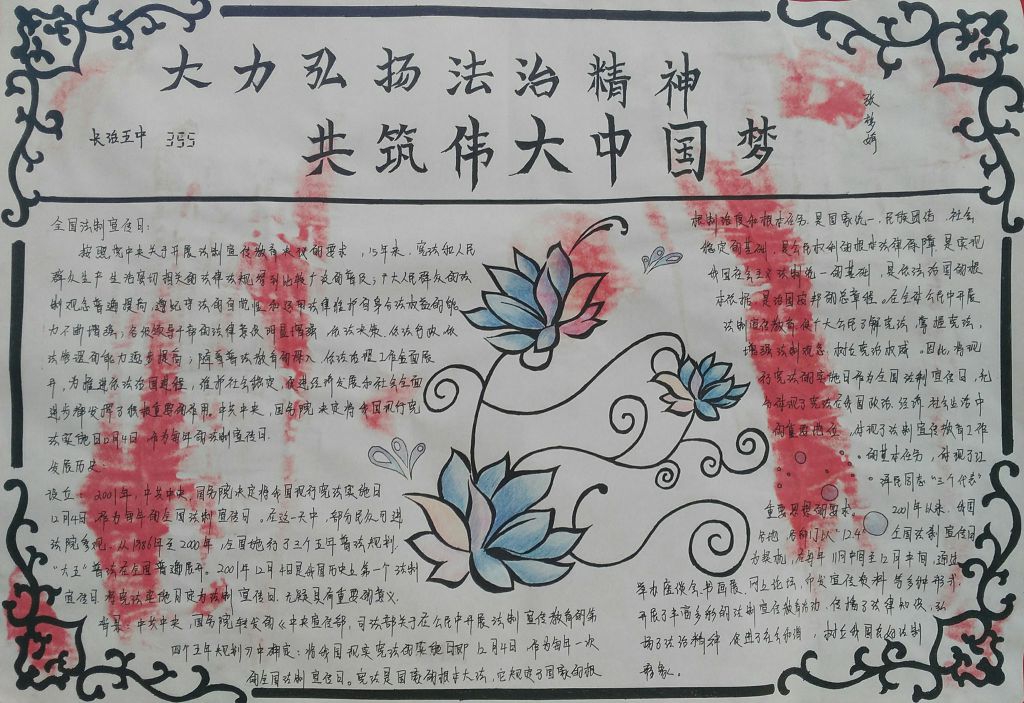 大力弘扬法治精神
共筑伟大中国梦
长治五中 355
张 婷
全国法制宣传日:
按照党中央关于开展法制宣传教育决议的要求,15年来,宪法和人民
群众生产生活密切相关的法律法规得到比较广泛的普及;广大人民群众的法
制观念普遍提高,遵纪守法的自觉性和运用法律维护自身合法权益的能
力不断增强;各级领导干部的法律意识明显增强,依法决策、依法行政、依
法管理的能力逐步提高;随着普法教育的深入,依法治理工作全面展
开,为推进依法治国进程,维护社会稳定,促进经济发展和社会全面
进步样发挥了积极重要的作用。中共中央、国务院决定将我国现行宪
法实施日12月4日,作为每年的全国法制宣传日。
发展历史:
设立:2001年,中共中央、国务院决定将我国现行宪法实施日
12月4日,作为每年的全国法制宣传日。在这一天中,部分民众可进
法院参观。从1986年至2000年,全国施行了三个五年普法规划.
普法在全国普遍展开。2001年12月4日是我国历史上第一个法制
宣传日.将宪法实施日定为法制宣传日,无疑具有重要的意义.
背景:中共中央、国务院转发的《中央宣传部、司法部关于在公民中开展法制宣传教育的第
四个五年规划》中确定:将我国现实宪法的实施日即12月4日,作为每年一次
的全国法制宣传日。宪法是国家的根本大法,它规定了国家的根
根制治度和根本任务.是国家统一、民族团结、社会
稳定的基础,是公民权利的根本法律保障,是实现
我国社会主义法制统一的基础,是依法治国的根
本依据,是治国安邦的总章程。在全体公民中开展
法制宣传教育,使广大公民了解宪法,掌握宪法,
增强法制观念,树立宪法权威。因此,将现
行宪法的实施日作为全国法制宣传日,充
分体现了宪法在我国政治、经济、社会生活中
的重要地位,体现了法制宣传教育工作
的基本任务,体现了江
泽民同志"三个代表"
重要思想的要求。 2001年以来,我国
各地、各部门以"12.4"全国法制宣传日
为契机,在每年11月中间至12月中间,通过
举办座谈会、书画展、网上论坛、印发宣传资料等多种形式,
开展了丰富多彩的法制宣传教育活动,传播了法律知识,弘
扬了法治精神,促进了社会和谐,树立我国良好法制
形象。